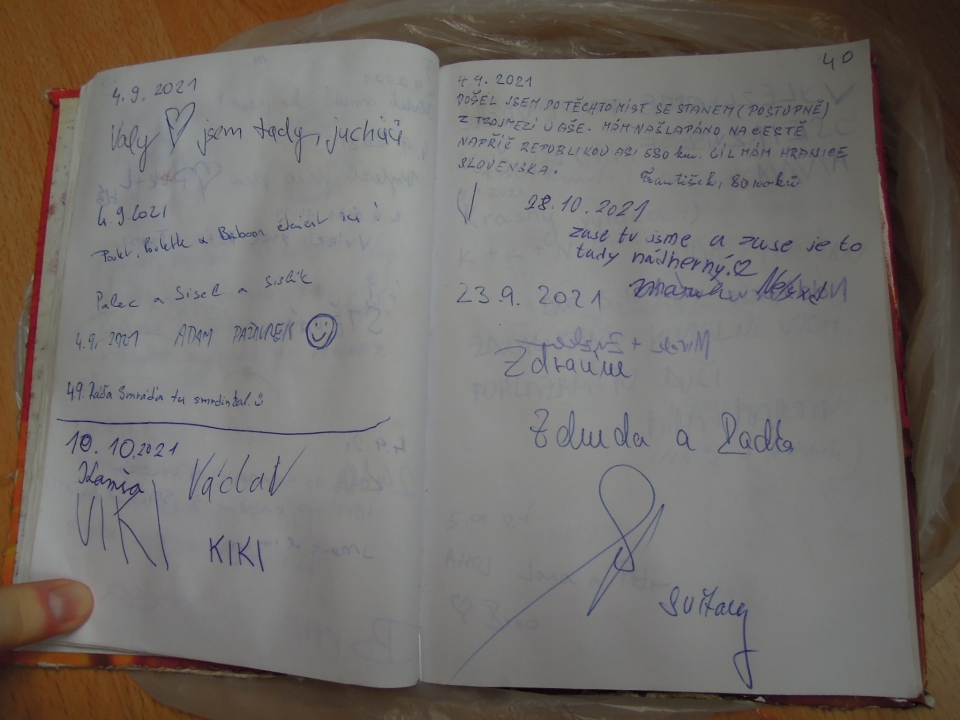 4.9.2021
Valy ♡ jsem tady, jucháá
4.9.2021
a Baboon
Palec a Sisel a sislík
4.9.2021 ADAM PAŽOUREK ☺
4.9. Záďa Smráďa tu smrdinžal. ☺
10.10.2021
Kamča Václav
VIKI KIKI
40
4.9.2021
DOŠEL JSEM DO TĚCHTO MÍST SE STANEM (POSTUPNĚ)
Z TROJMEZÍ U AŠE. MÁM NAŠLAPÁNO NA CESTĚ
NAPŘÍČ REPUBLIKOU ASI 580 km. CÍL MÁM HRANICE
SLOVENSKA.
František, 80 roků
28.10.2021
zase tu jsme a zase je to
tady nádherný. ♡
23.9.2021
Zdravíme
Zdenda a Radka
Svitavy